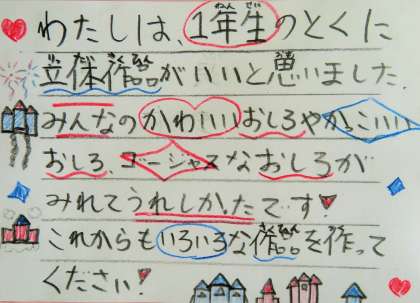 わたしは、1年生のとくに
立体作品がいいと思いました。
みんなのかわいいおしろやかっこいい
おしろ、ゴージャスなおしろが
みれてうれしかったです!
これからもいろいろな作品を作って
ください!